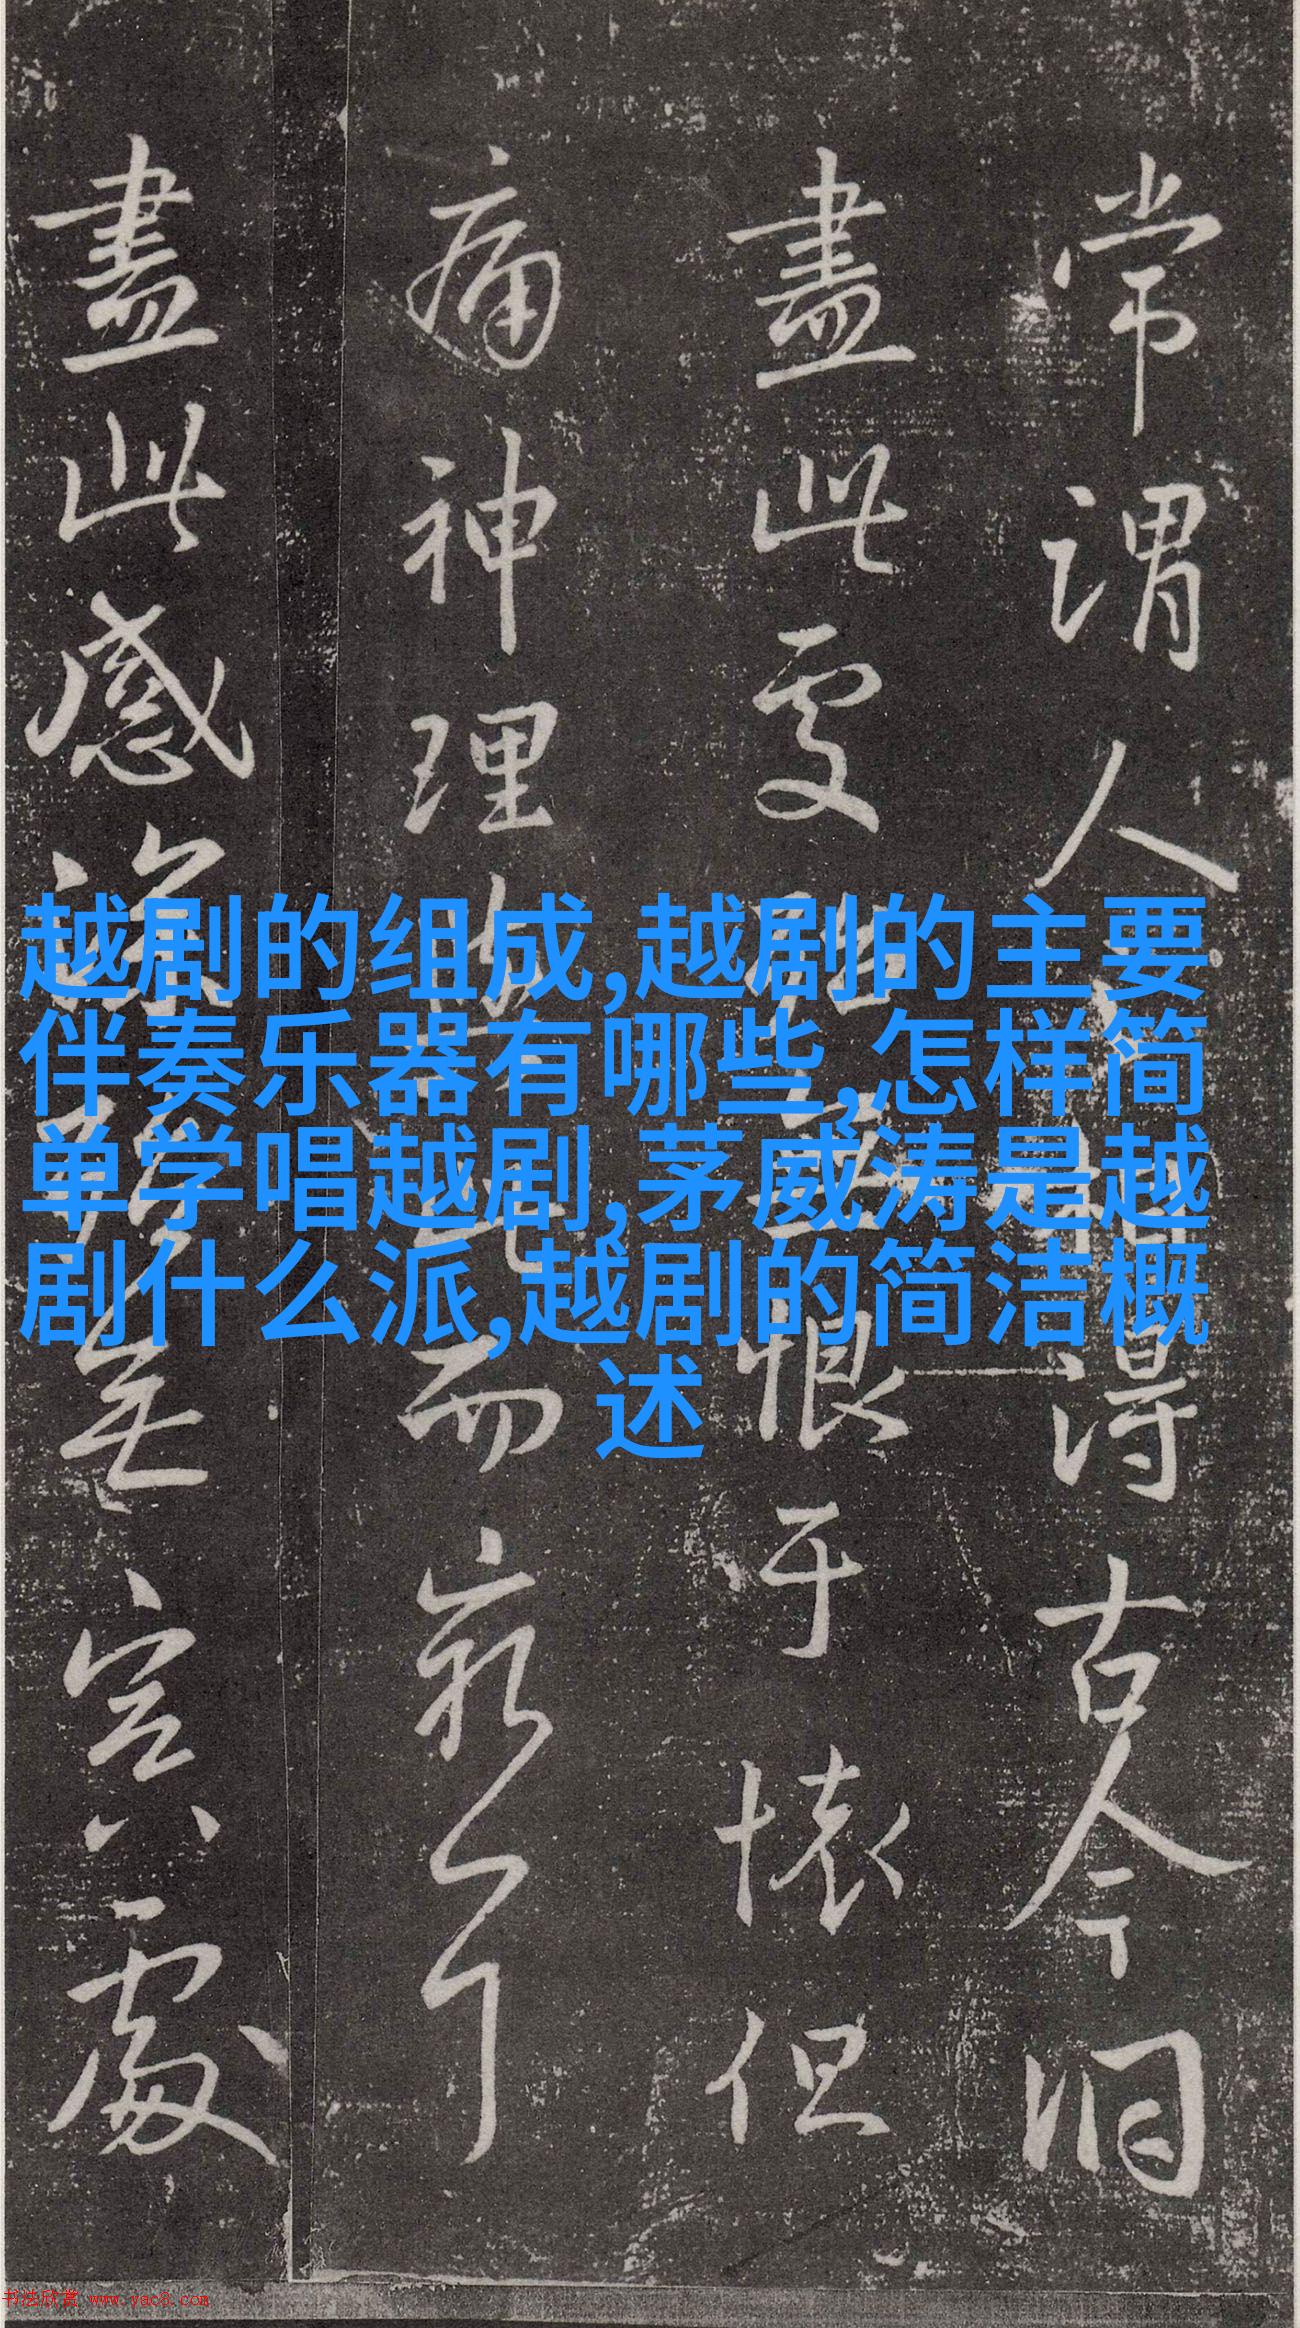 常谓人
得古今洞
盡此處
恨于懷但
痛神理
而窮了
盡此感深
宜八處
越剧的组成,越剧的主要
伴奏乐器有哪些,怎样简
单学唱越剧,茅威涛是越
剧什么派,越剧的简洁概
述
书法欣赏 www.yac8.com